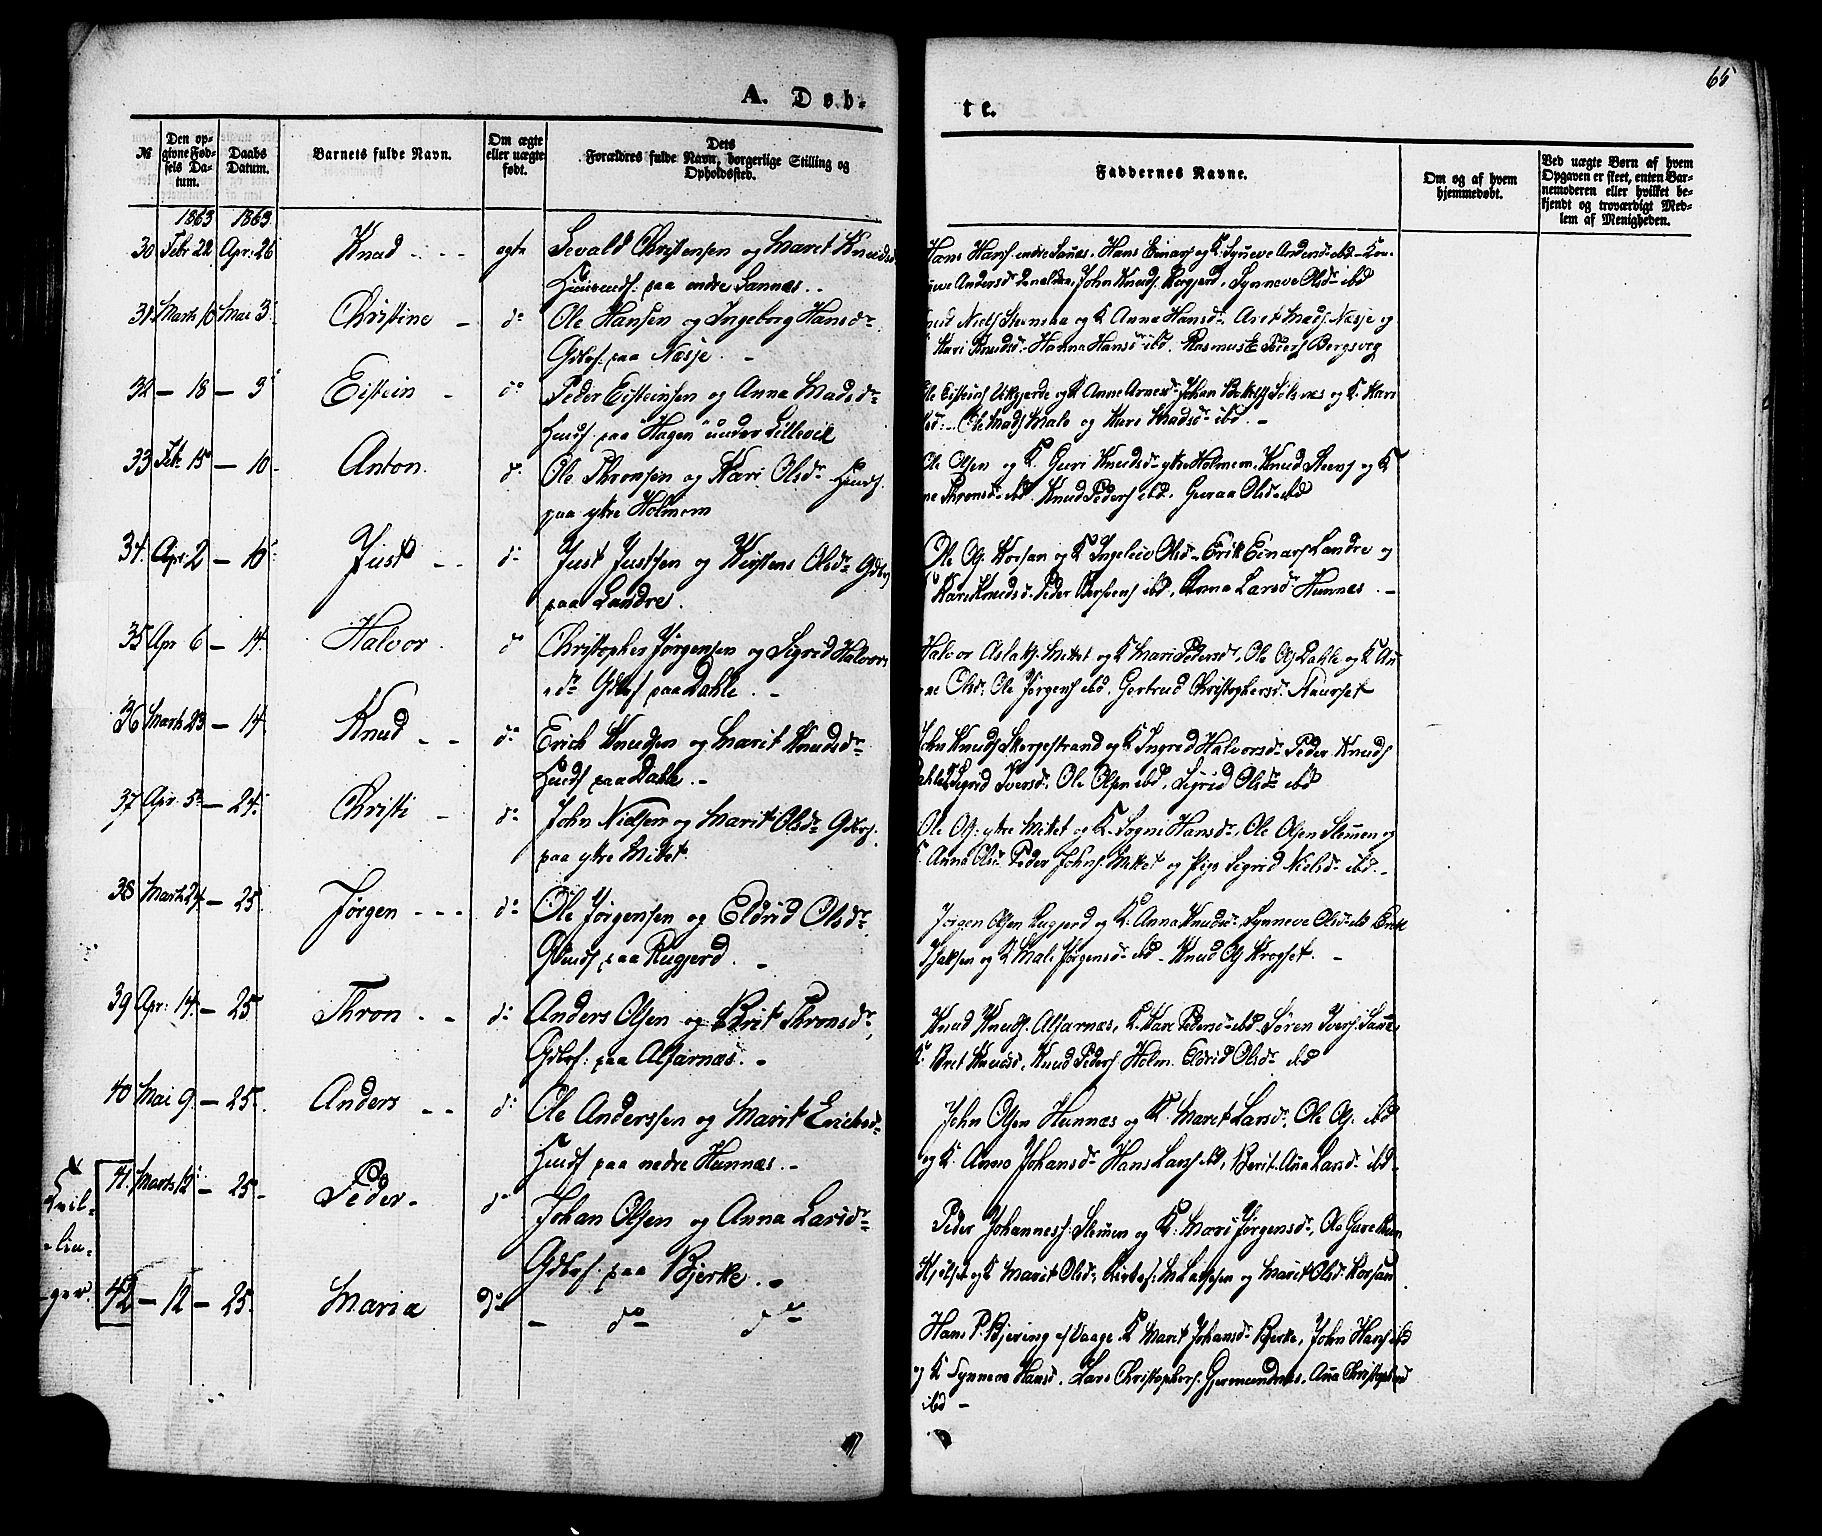 65
A. Døb-
te.
№
Den opgivne Fødsels Datum.
Daabs Datum.
Barnets fulde Navn.
Om ægte eller uægte født.
Dets Forældres fulde Navn, borgerlige Stilling og Opholdssted.
Faddernes Navne.
Om og af hvem hjemmedøbt.
Ved uægte Børn af hvem Opgaven er skeet, enten Barnemoderen eller hvilket bekjendt og troværdigt Medlem af Menigheden.
1863 1863
30 Febr 22. Apr: 26 Knud - - - ægte Sevald Christensen og Marit Knudsd
Huusmd: paa indre Sannæs - -
Hans Hans indre Sanæs. Hans Einars og K. Synneve Andersdr ibd -
Andersdr John Knuds. Rugjerd, Synneve Olsdr ibd
31 Marts 16 Mai 3 Christine - do Ole Hansen og Ingeborg Hansdr
Gdbrf: paa Nesje. -
Niels Stemna og K Anna Hansdr. Mads. Nesje og
Kari Knudsdr Hanna Hansdr ibd. Rasmus Peders Bergsveg
32 - 18 - 3 Eistein - do Peder Eisteinsen og Anna Madsdr
Huusf paa Hagen under Lillevik
Eisteins Vikgjerde og K Anne Arnesdr Johan Solsnæs og K. Kari
Ole Mads Male og Kari Madsdr ibd. -
33 Febr 15 - 10 - Anton. do Ole Thronsen og Kari Olsdr Huusf.
paa ytre Holmem
Ole Olsen og K. Guri Knudsdr ytre Holmem. Knud Steens og K
Thronsdr ibd. Knud Peders ibd. Guraa Olsdr ibd
34. Apr. 2 - 10 Just - - do Just Justsen og Kirstens Olsdr Gdbrf
paa Landre.
Ole Os. Korsan og K Ingeleiv Olsdr Erik Einars Landre og
K Kari Knudsdr. Peder ibd, Anna Larsdr Hunnes. -
35 Apr 6 - 14. Halvor. do Christopher Jørgensen og Sigrid Halvors
dr Gdbrf paa Dahle. -
Halvor Aslaks. Mittet og K Mari Pedersdr, Ole Ols Dahle og K An
ne Olsdr. Ole Jørgens ibd. Gertrud Christophersdr Naurset
36 Marts 23 - 14 Knud - - do Erich Knudsen og Marit Knudsdr
Huusf paa Dahle. -
John Knuds Skorgestrand og K Ingrid Halvorsdr Peder Knuds
Dahle Sigrid Iversdr. Ole Olsen ibd, Sigrid Olsdr ibd
37 Apr. 5 - 24. Christi - do John Nielsen og Marit Olsdr Gdbrf.
paa ytre Mittet
Ole Os: ytre Mittet og K. Sogni Hansdr, Ole Olsen Slemmen og
K Anna Olsdr Peder Johns. Mittet og Pige Sigrid Nielsdr ibd. -
38 Marts 24 - 25. Jørgen - - - do Ole Jørgensen og Eldrid Olsdr
paa Rugjerd. -
Jørgen Olsen Rugjerd og K. Anna Knudsdr. Synneve Olsdr ibd Erik
Isaksen og K Mali Jørgensdr ibd - Knud Os Krogset. -
39 Apr: 14. - 25 Thron - - do Anders Olsen og Brit Thronsdr,
Gdbrf: paa Alfarnæs. -
Knud Knuds. Alfarnæs, K. Kari Pedersdr ibd. Søren Ivers.
K Bret Knudsd, Knud Peders Holm. Eldrid Olsdr ibd
40 Mai 9. - 25. Anders - - do Ole Anderssen og Marit Erichsd
Huusf paa nedre Hunnæs. -
John Olsen Hunnæs og K Marit Larsdr, Ole Os. ibd
og K. Anne Johansdr Hans Lars ibd, Berit Ana Larsdr ibd
41. Marts 12 - 25 - Peder - do Johan Olsen og Anna Larsdr
Gdbrf: paa Bjerke. -
Peder Johannes: Slemmen og K: Mari Jørgensdr,
og K Marit Olsdr, og Marit Olsdr Korsan
Tvil-
lin-
ger.
42 - 12 - 25. Maria do - do do
Hans P. Bjering af Vaage. K Marit Johansdr Bjerke, John Hans ibd
og K Synneve Hansd. Lars Christophers. Gjermundnæs. Ana Christophersd
ibd -